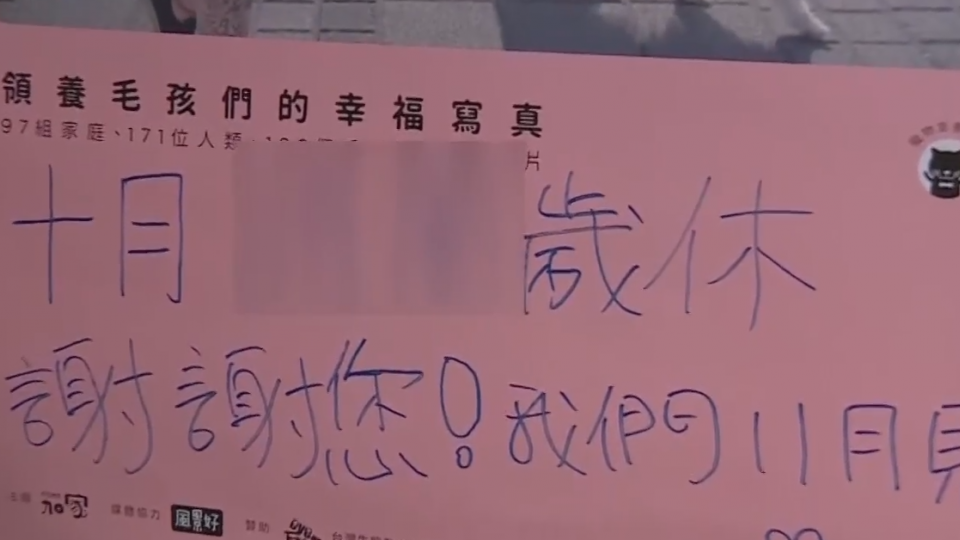 領養毛孩們的幸福寫真
97組家庭、171位人類
片
十月 歲休
謝謝您！我們11月見
加家 媒體協力 風景好 贊助